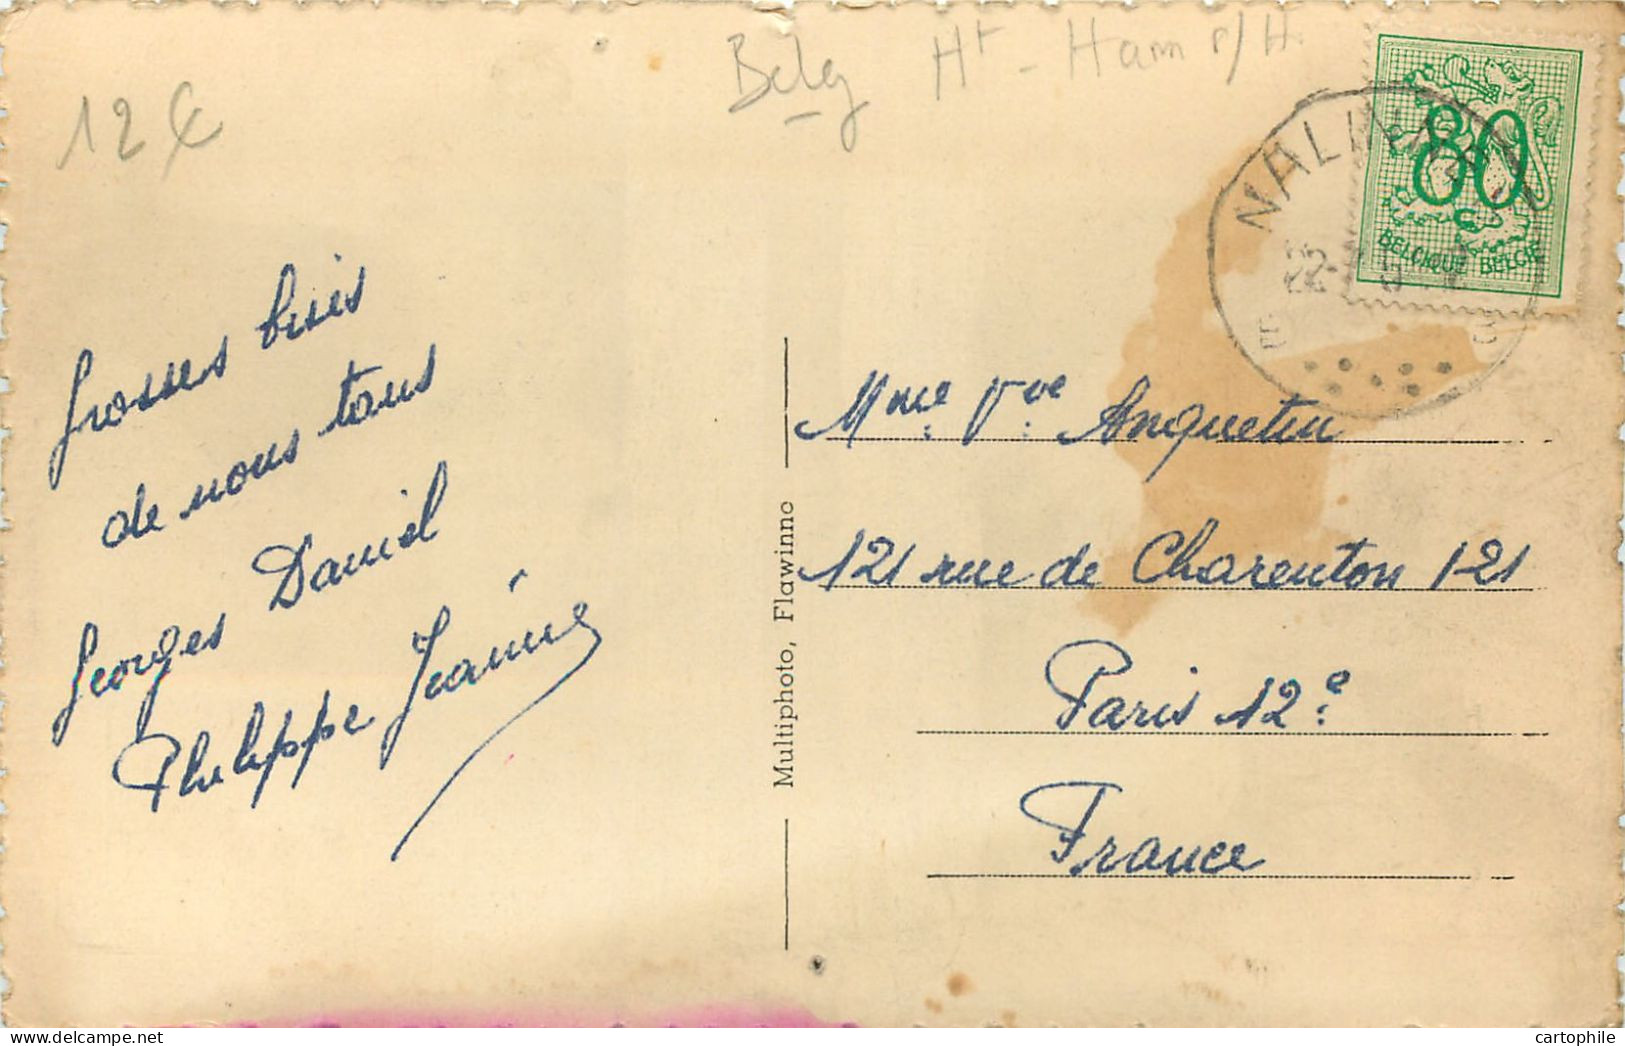 12 €
Belg Ht - Ham s/H.
NALINNES
22-
80
c
BELGIQUE BELGIE
Grosses bises
de nous tous
Georges Daniel
Philippe Jeanine
Multiphoto, Flawinne
Mme Vve Anquetin
121 rue de Charenton 121
Paris 12e
France
cartophile